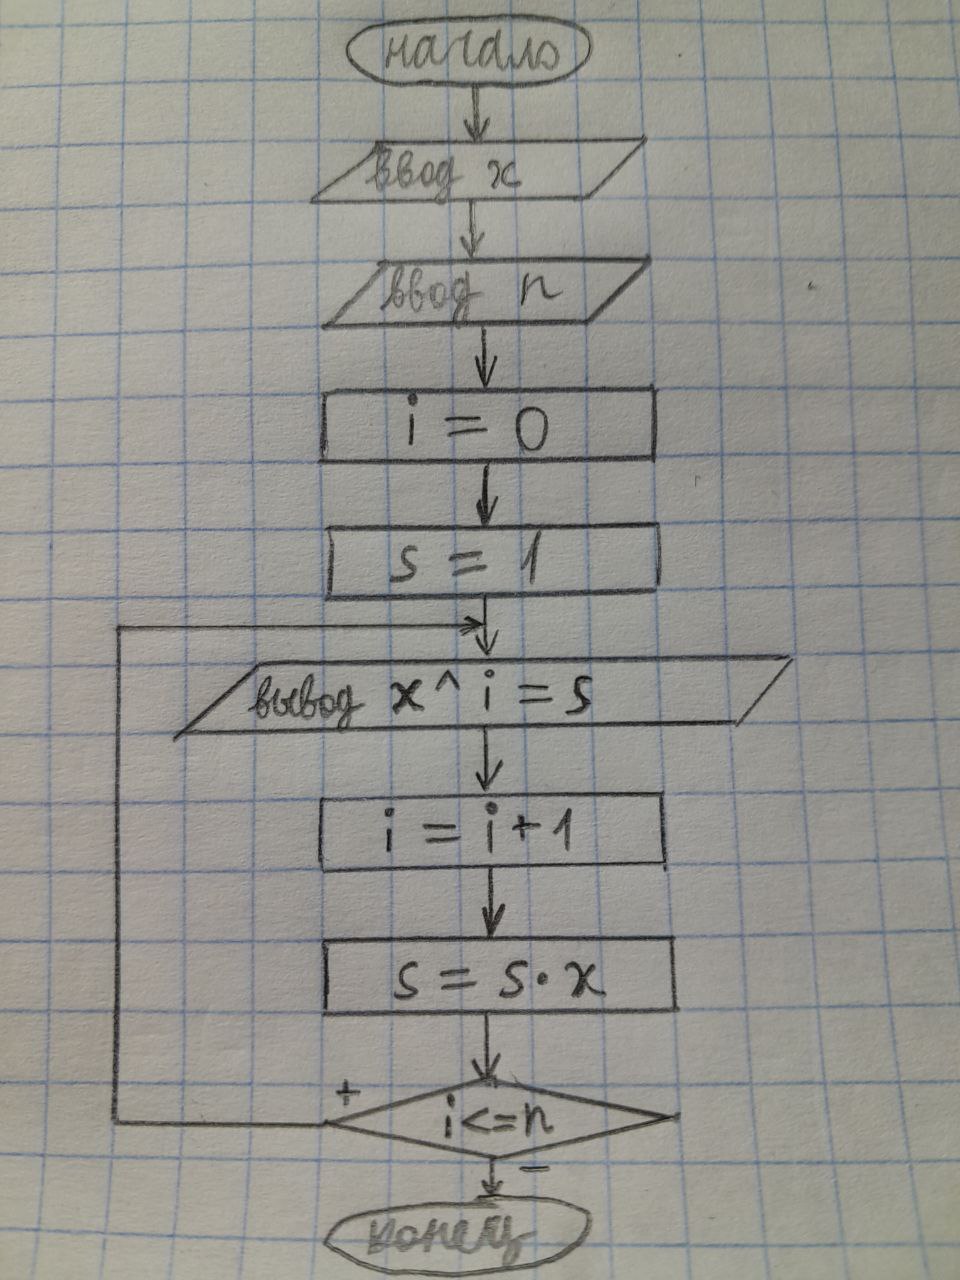 начало
ввод x
ввод n
i = 0
s = 1
вывод x^i = s
i = i + 1
s = s · x
+
i<=n
−
конец